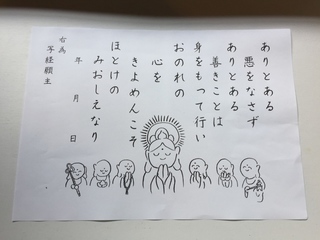 ありとある
悪をなさず
ありとある
善きことは
身をもって行い
おのれの
心を
きよめんこそ
ほとけの
みおしえなり
年 月 日
右為
写経願主